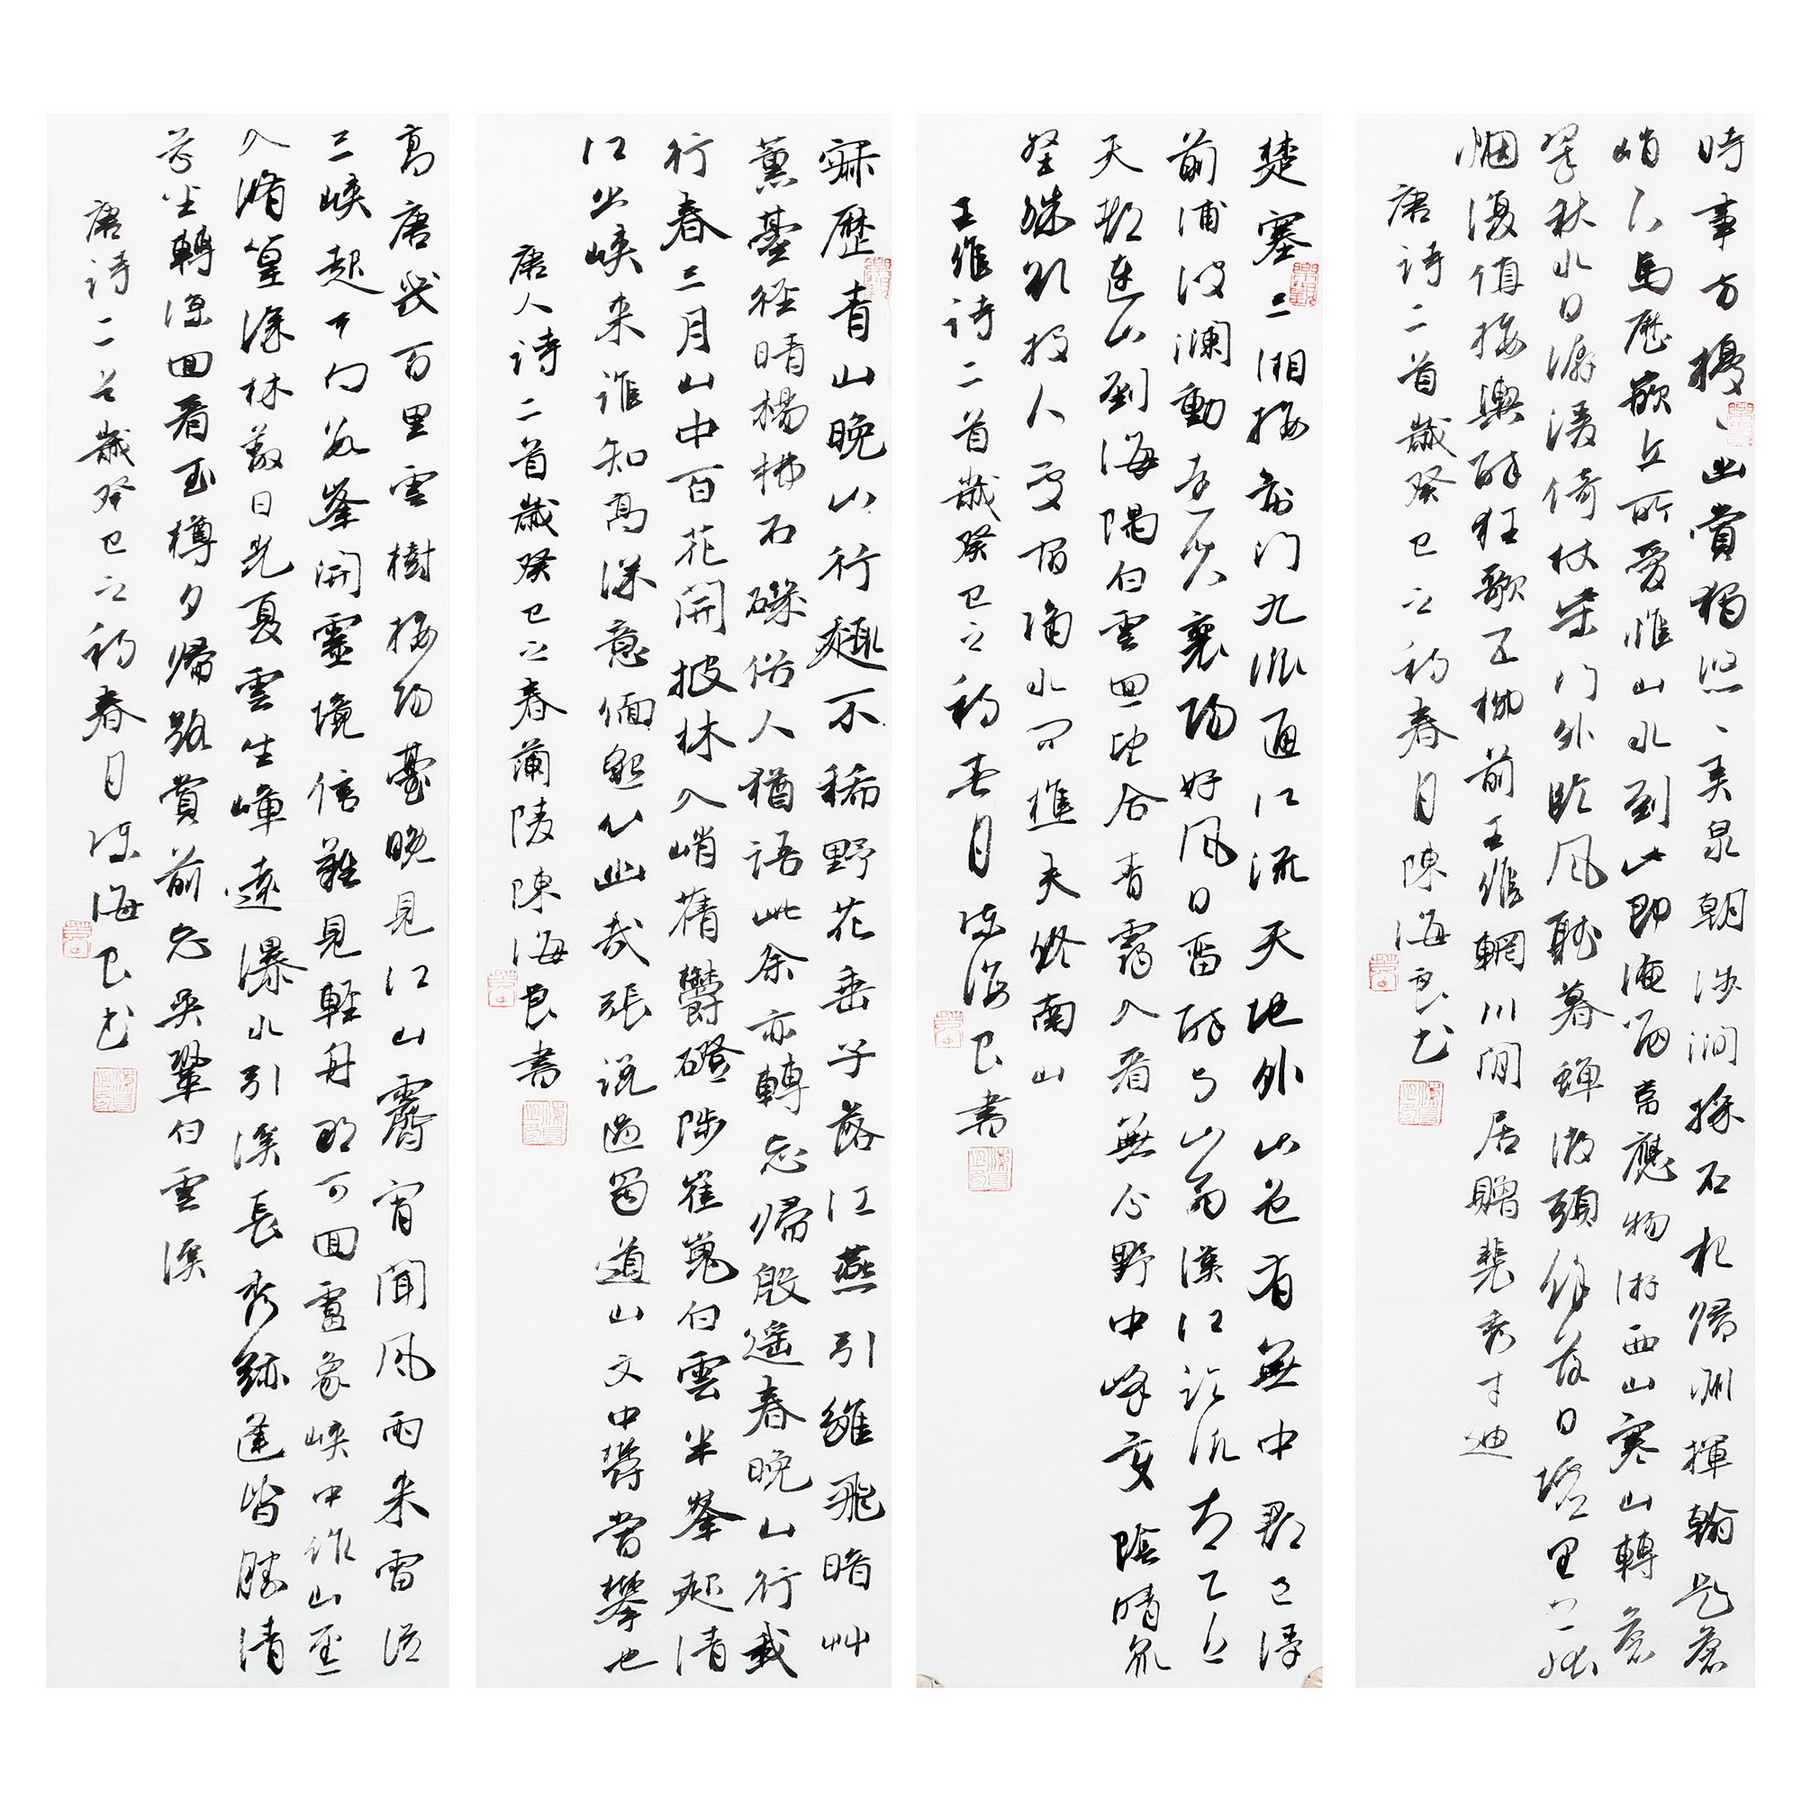 時事方擾、幽賞獨悠、弄泉朝涉澗採石夜歸州揮翰題蒼
峭下馬歷嵌丘所愛惟山水到此即淹留韋應物游西山寒山轉蒼
翠秋水日潺湲倚杖柴門外臨風聽暮蟬渡頭餘落日墟里上孤
烟復值接輿醉狂歌五柳前王維輞川閒居贈裴秀才迪
唐詩二首歲癸巳之初春月陳海良書
楚塞三湘接荊門九派通江流天地外山色有無中郡邑浮
前浦波瀾動遠空襄陽好風日留醉与山翁漢江臨汎太乙近
天都連山到海隅白雲迴望合青靄入看無分野中峰變陰晴眾
壑殊欲投人處宿隔水問樵夫終南山
王維詩二首歲癸巳之初春月陳海良書
寂歷青山晚山行趣不稀野花垂子落江燕引雛飛暗艸
薰臺徑晴楊拂石磯俗人猶語此余亦轉忘歸殷遙春晚山行載
行春三月山中百花開披林入峭蒨欝磴陟崔嵬白雲半峯起清
江出峽来誰知高深意緬邈心幽哉張説過蜀道山文中欝當攀也
唐人詩二首歲癸巳之春蘭陵陳海良書
高唐幾百里雲樹接陽臺晚見江山霽宵聞風雨来雷從
三峽起天向數峯開靈境信難見輕舟那可回盧象峽中作山逕
入脩篁深林蔽日光夏雲生嶂遠瀑水引溪長秀跡逢皆勝清
芬坐轉涼回看玉樽夕歸路賞前忘吳鞏白雲溪
唐詩二首歲癸巳之初春月陳海良書